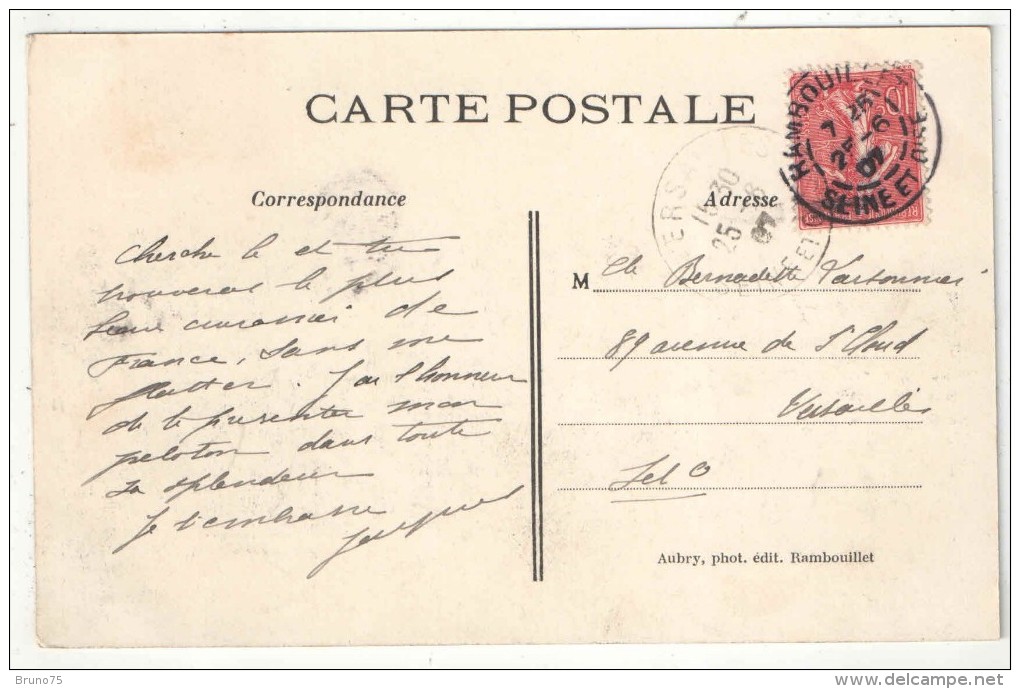 CARTE POSTALE
RAMBOUILLET
7 25
25 -6
07
SEINE ET OISE
VERSA
16 30
25 -6
07
ET
Correspondance
Adresse
Cherche le et tu
trouveras le plus
beau cuirassier de
France, sans me
flatter. J'ai l'honneur
de te présenter mon
peloton dans toute
sa splendeur
Je t'embrasse
Jacques
M lle Bernadette
89 avenue de St Cloud
Versailles
S et O
Aubry, phot. édit. Rambouillet
Bruno75
delcampe.net